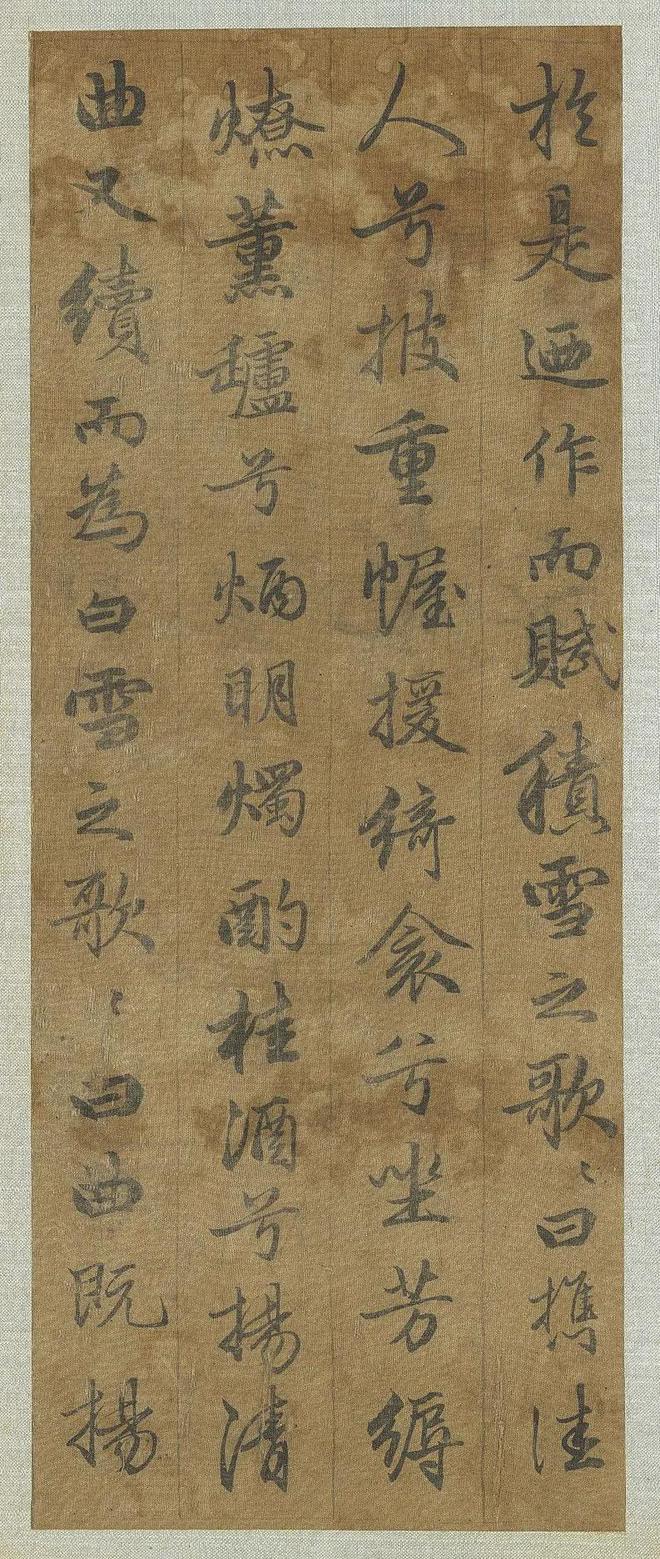 於是迺作而賦積雪之歌〻曰携佳
人兮披重幄援綺衾兮坐芳縟
燎薰鑪兮炳明燭酌桂酒兮揚清
曲又續而為白雪之歌〻曰曲既揚